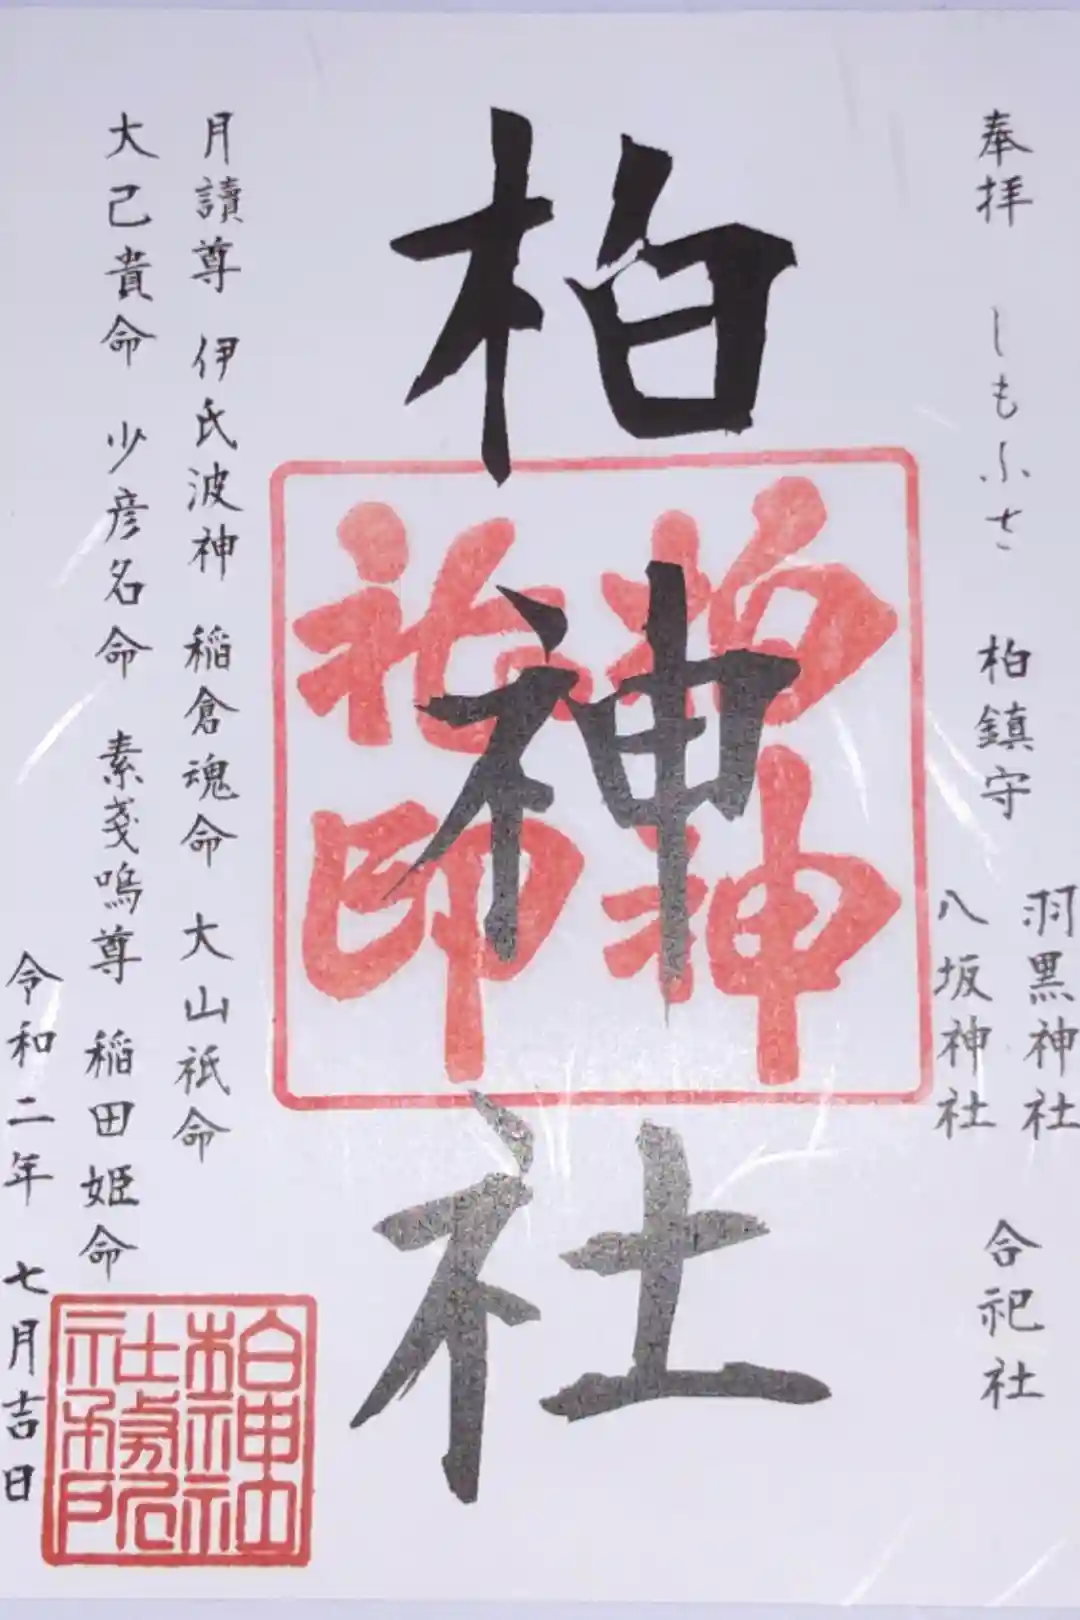 奉拝 しもふさ 柏鎮守
羽黒神社
八坂神社
合祀社
柏神社
柏神社印
月讀尊 伊氐波神 稲倉魂命 大山祇命
大己貴命 少彦名命 素戔嗚尊 稲田姫命
令和二年 七月吉日
柏神社社務所